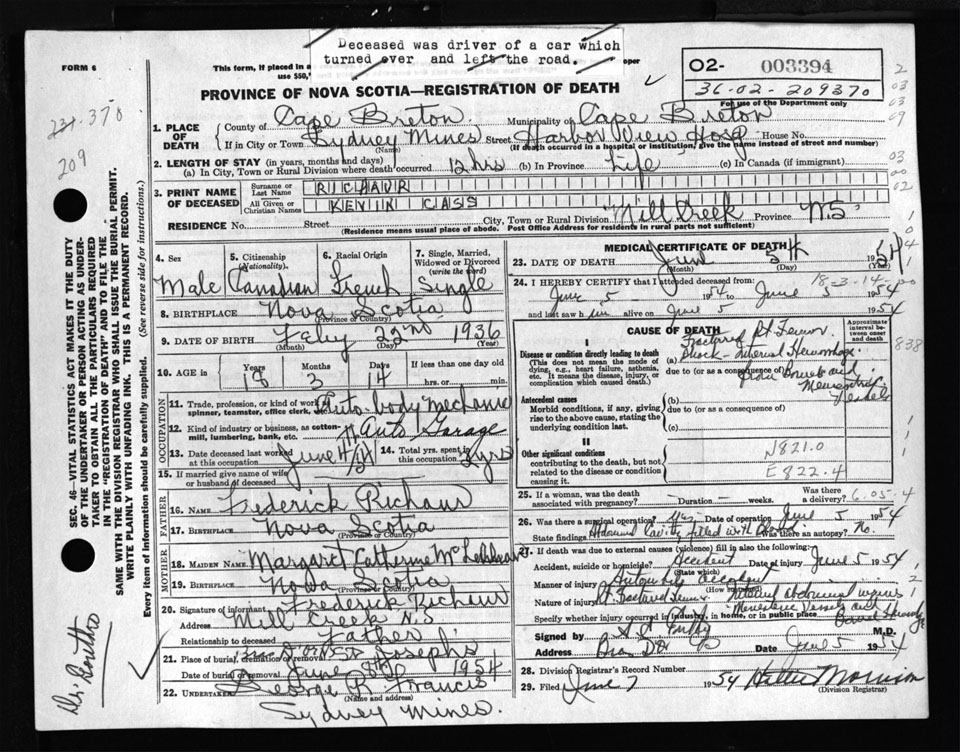 Deceased was driver of a car which
turned over and left the road.
FORM 6
This form, if placed in a
use $50,
oper
02- 003394
36-02-209370
For use of the Department only
PROVINCE OF NOVA SCOTIA—REGISTRATION OF DEATH
231-378
209
1. PLACE OF DEATH
County of Cape Breton Municipality of Cape Breton
If in City or Town Sydney Mines Street Harbor View Hosp House No.
(Name) (If death occurred in a hospital or institution, give the name instead of street and number)
2. LENGTH OF STAY (in years, months and days)
(a) In City, Town or Rural Division where death occurred 12 hrs (b) In Province Life (c) In Canada (if immigrant)
3. PRINT NAME OF DECEASED
Surname or Last Name RICHAUR
All Given or Christian Names KEVIN CASS
RESIDENCE No. Street City, Town or Rural Division Mill Creek Province N.S
(Residence means usual place of abode. Post Office Address for residents in rural parts not sufficient)
4. Sex Male
5. Citizenship (Nationality). Canadian
6. Racial Origin French
7. Single, Married, Widowed or Divorced (write the word) Single
8. BIRTHPLACE Nova Scotia
(Province or Country)
9. DATE OF BIRTH Feby 22nd 1936
(Month) (Day) (Year)
10. AGE in Years Months Days If less than one day
18 3 14 hrs. or min.
OCCUPATION
11. Trade, profession, or kind of work as spinner, teamster, office clerk, Auto body mechanic
12. Kind of industry or business, as cotton-mill, lumbering, bank, etc. Auto Garage
13. Date deceased last worked at this occupation June 4/54
14. Total yrs. spent in this occupation 2 yrs
15. If married give name of wife or husband of deceased
FATHER
16. NAME Frederick Richaur
17. BIRTHPLACE Nova Scotia
MOTHER
18. MAIDEN NAME Margaret Catherine
19. BIRTHPLACE Nova Scotia
(Province or Country)
20. Signature of informant Frederick Richaur
Address Mill Creek N.S
Relationship to deceased Father
21. Place of burial, cremation or removal St Josephs
Date of burial or removal June 8th 1954
22. UNDERTAKER George R Francis
(Name and address)
Sydney Mines.
MEDICAL CERTIFICATE OF DEATH
23. DATE OF DEATH June 5th 1954
(Month) (Day) (Year)
18-3-14
24. I HEREBY CERTIFY that I attended deceased from:
June 5 1954 to June 1954
and last saw him alive on June 5 1954
CAUSE OF DEATH
Approximate interval between onset and death
I
Disease or condition directly leading to death
(This does not mean the mode of dying, e.g., heart failure, asthenia, etc. It means the disease, injury, or complication which caused death.)
Fractured Rt Femur
(a) Shock - Internal Hemorrhage
due to (or as a consequence of) from Bowel and
Mesenteric
Vessels
Antecedent causes
Morbid conditions, if any, giving rise to the above cause, stating the underlying condition last.
(b)
due to (or as a consequence of)
(c)
II
Other significant conditions
contributing to the death, but not related to the disease or condition causing it.
N821.0
E822.4
838
25. If a woman, was the death associated with pregnancy? —Duration— weeks. Was there a delivery? 6-05-4
26. Was there a surgical operation? Yes Date of operation June 5 1954
State findings Abdominal Cavity filled with Blood Was there an autopsy? No
27. If death was due to external causes (violence) fill in also the following:
Accident, suicide or homicide? Accident Date of injury June 5 1954
(State which)
Manner of injury Automobile accident
Nature of injury Rt. Fractured Femur Internal abdominal injuries
Mesenteric Vessels and
Specify whether injury occurred in industry, in home, or in public place
Signed by M.D.
Address Date June 5 1954
28. Division Registrar's Record Number
29. Filed June 7 1954 Hattie Morrison
(Division Registrar)
SEC. 46—VITAL STATISTICS ACT MAKES IT THE DUTY
OF THE UNDERTAKER OR PERSON ACTING AS UNDER-
TAKER TO OBTAIN ALL THE PARTICULARS REQUIRED
IN THE "REGISTRATION OF DEATH" AND TO FILE THE
SAME WITH THE DIVISION REGISTRAR WHO SHALL ISSUE THE BURIAL PERMIT.
WRITE PLAINLY WITH UNFADING INK. THIS IS A PERMANENT RECORD.
Every item of information should be carefully supplied. (See reverse side for instructions.)